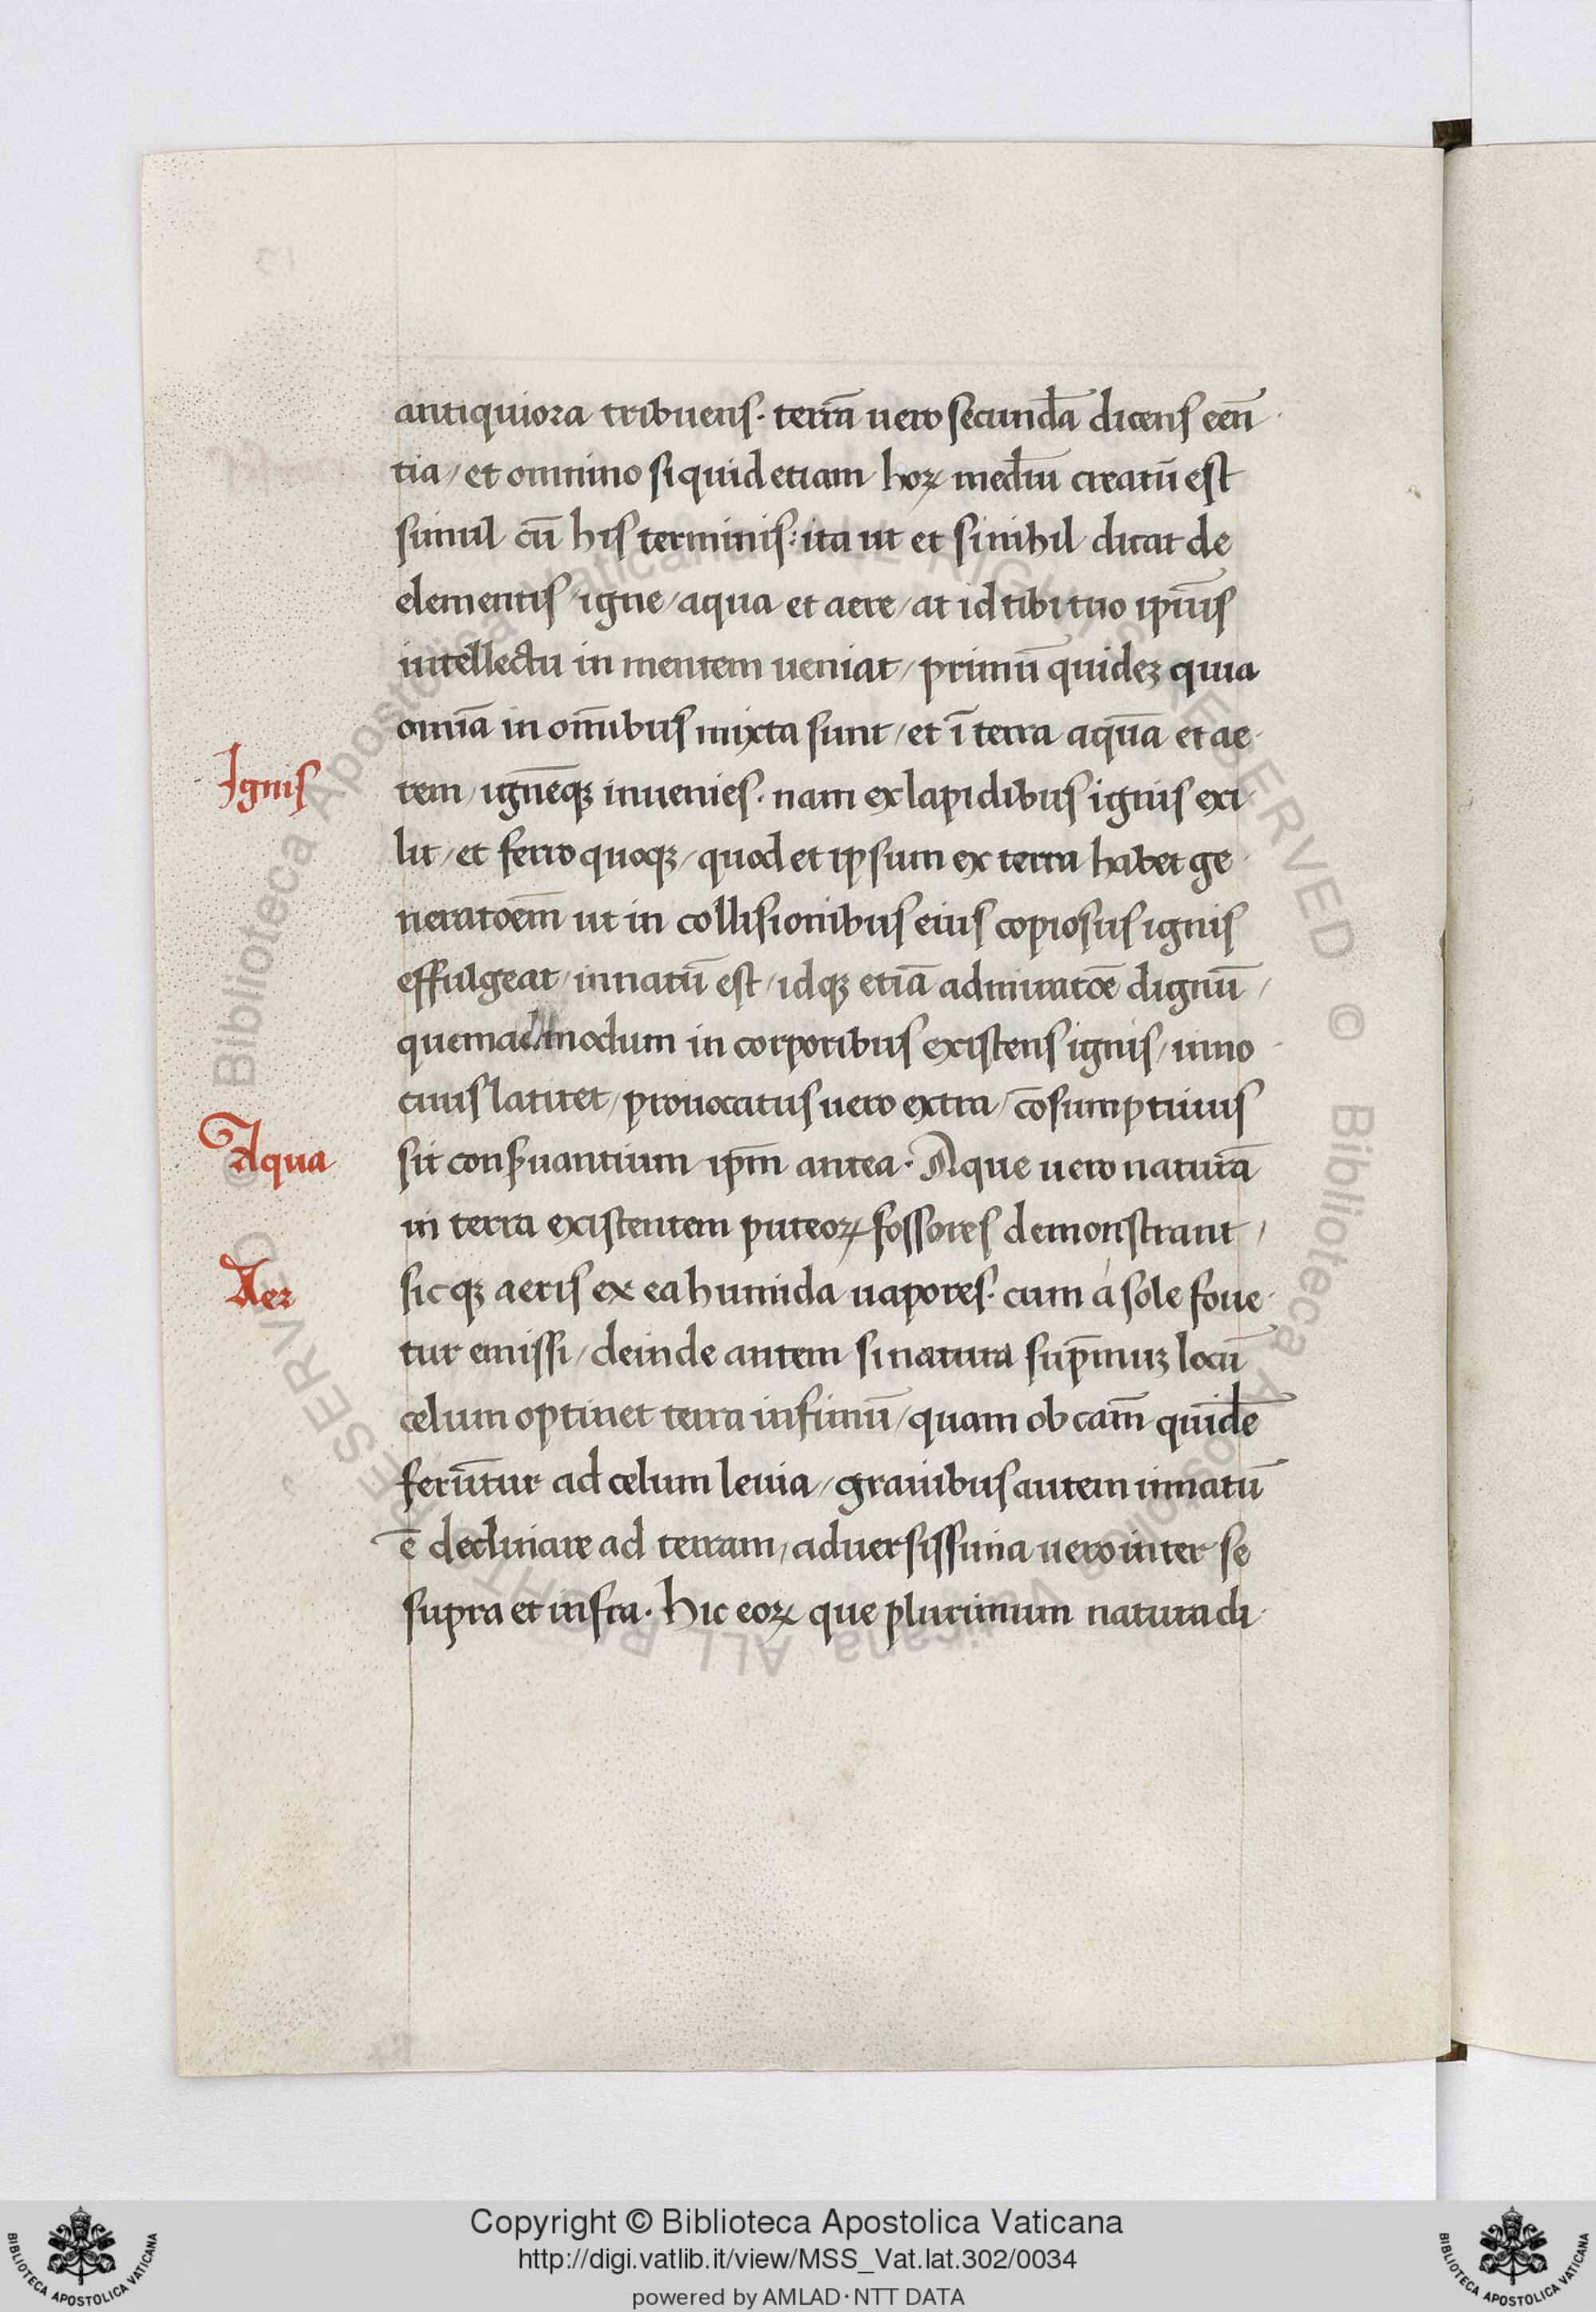 antiquiora tribuens· terrā uero secundā dicens eēn
tia/et omnino siquid etiam hoꝝ mediū creatū est
simul cū his terminis: ita ut et si nihil dicat de
elementis/igne/aqua et aere/at id tibi tuo ipīus
intellectu in mentem ueniat/primū quideꝫ quia
omīa in oīnibus mixta sunt/et ī terra aquā et ae
rem/ignēqꝫ inuenies· nam ex lapidibus ignis exi
Ignis
lit/et ferro quoqꝫ/quod et ipsum ex terra habet ge
neratoēm ut in collisionibus eius copiosus ignis
effulgeat/innatū est/idqꝫ etiā admiratōe dignū/
quemadmodum in corporibus existens ignis/inno
cuus latitet/prouocatus uero extra/cōsumptiuus
sit conẜuantium ipm̄ antea· Aque uero naturā
Aqua
in terra existentem puteoꝝ fossores demonstrant/
sicqꝫ aeris ex ea humida uapores· cum á sole foue
Aer
tur emissi/deinde autem si natura sup̄muꝫ locū
celum optinet terra infimū/quam ob cam̄ quidē
ferūtur ad celum leuia/grauibus autem innatū
ē declinare ad terram/aduersissima uero inter se
supra et infra· hic eoꝝ que plurimum natura di
Copyright © Biblioteca Apostolica Vaticana
http://digi.vatlib.it/view/MSS_Vat.lat.302/0034
powered by AMLAD·NTT DATA
BIBLIOTECA APOSTOLICA VATICANA
BIBLIOTECA APOSTOLICA VATICANA
© Biblioteca Apostolica Vaticana ALL RIGHTS RESERVED © Biblioteca Apostolica Vaticana ALL RIGHTS RESERVED